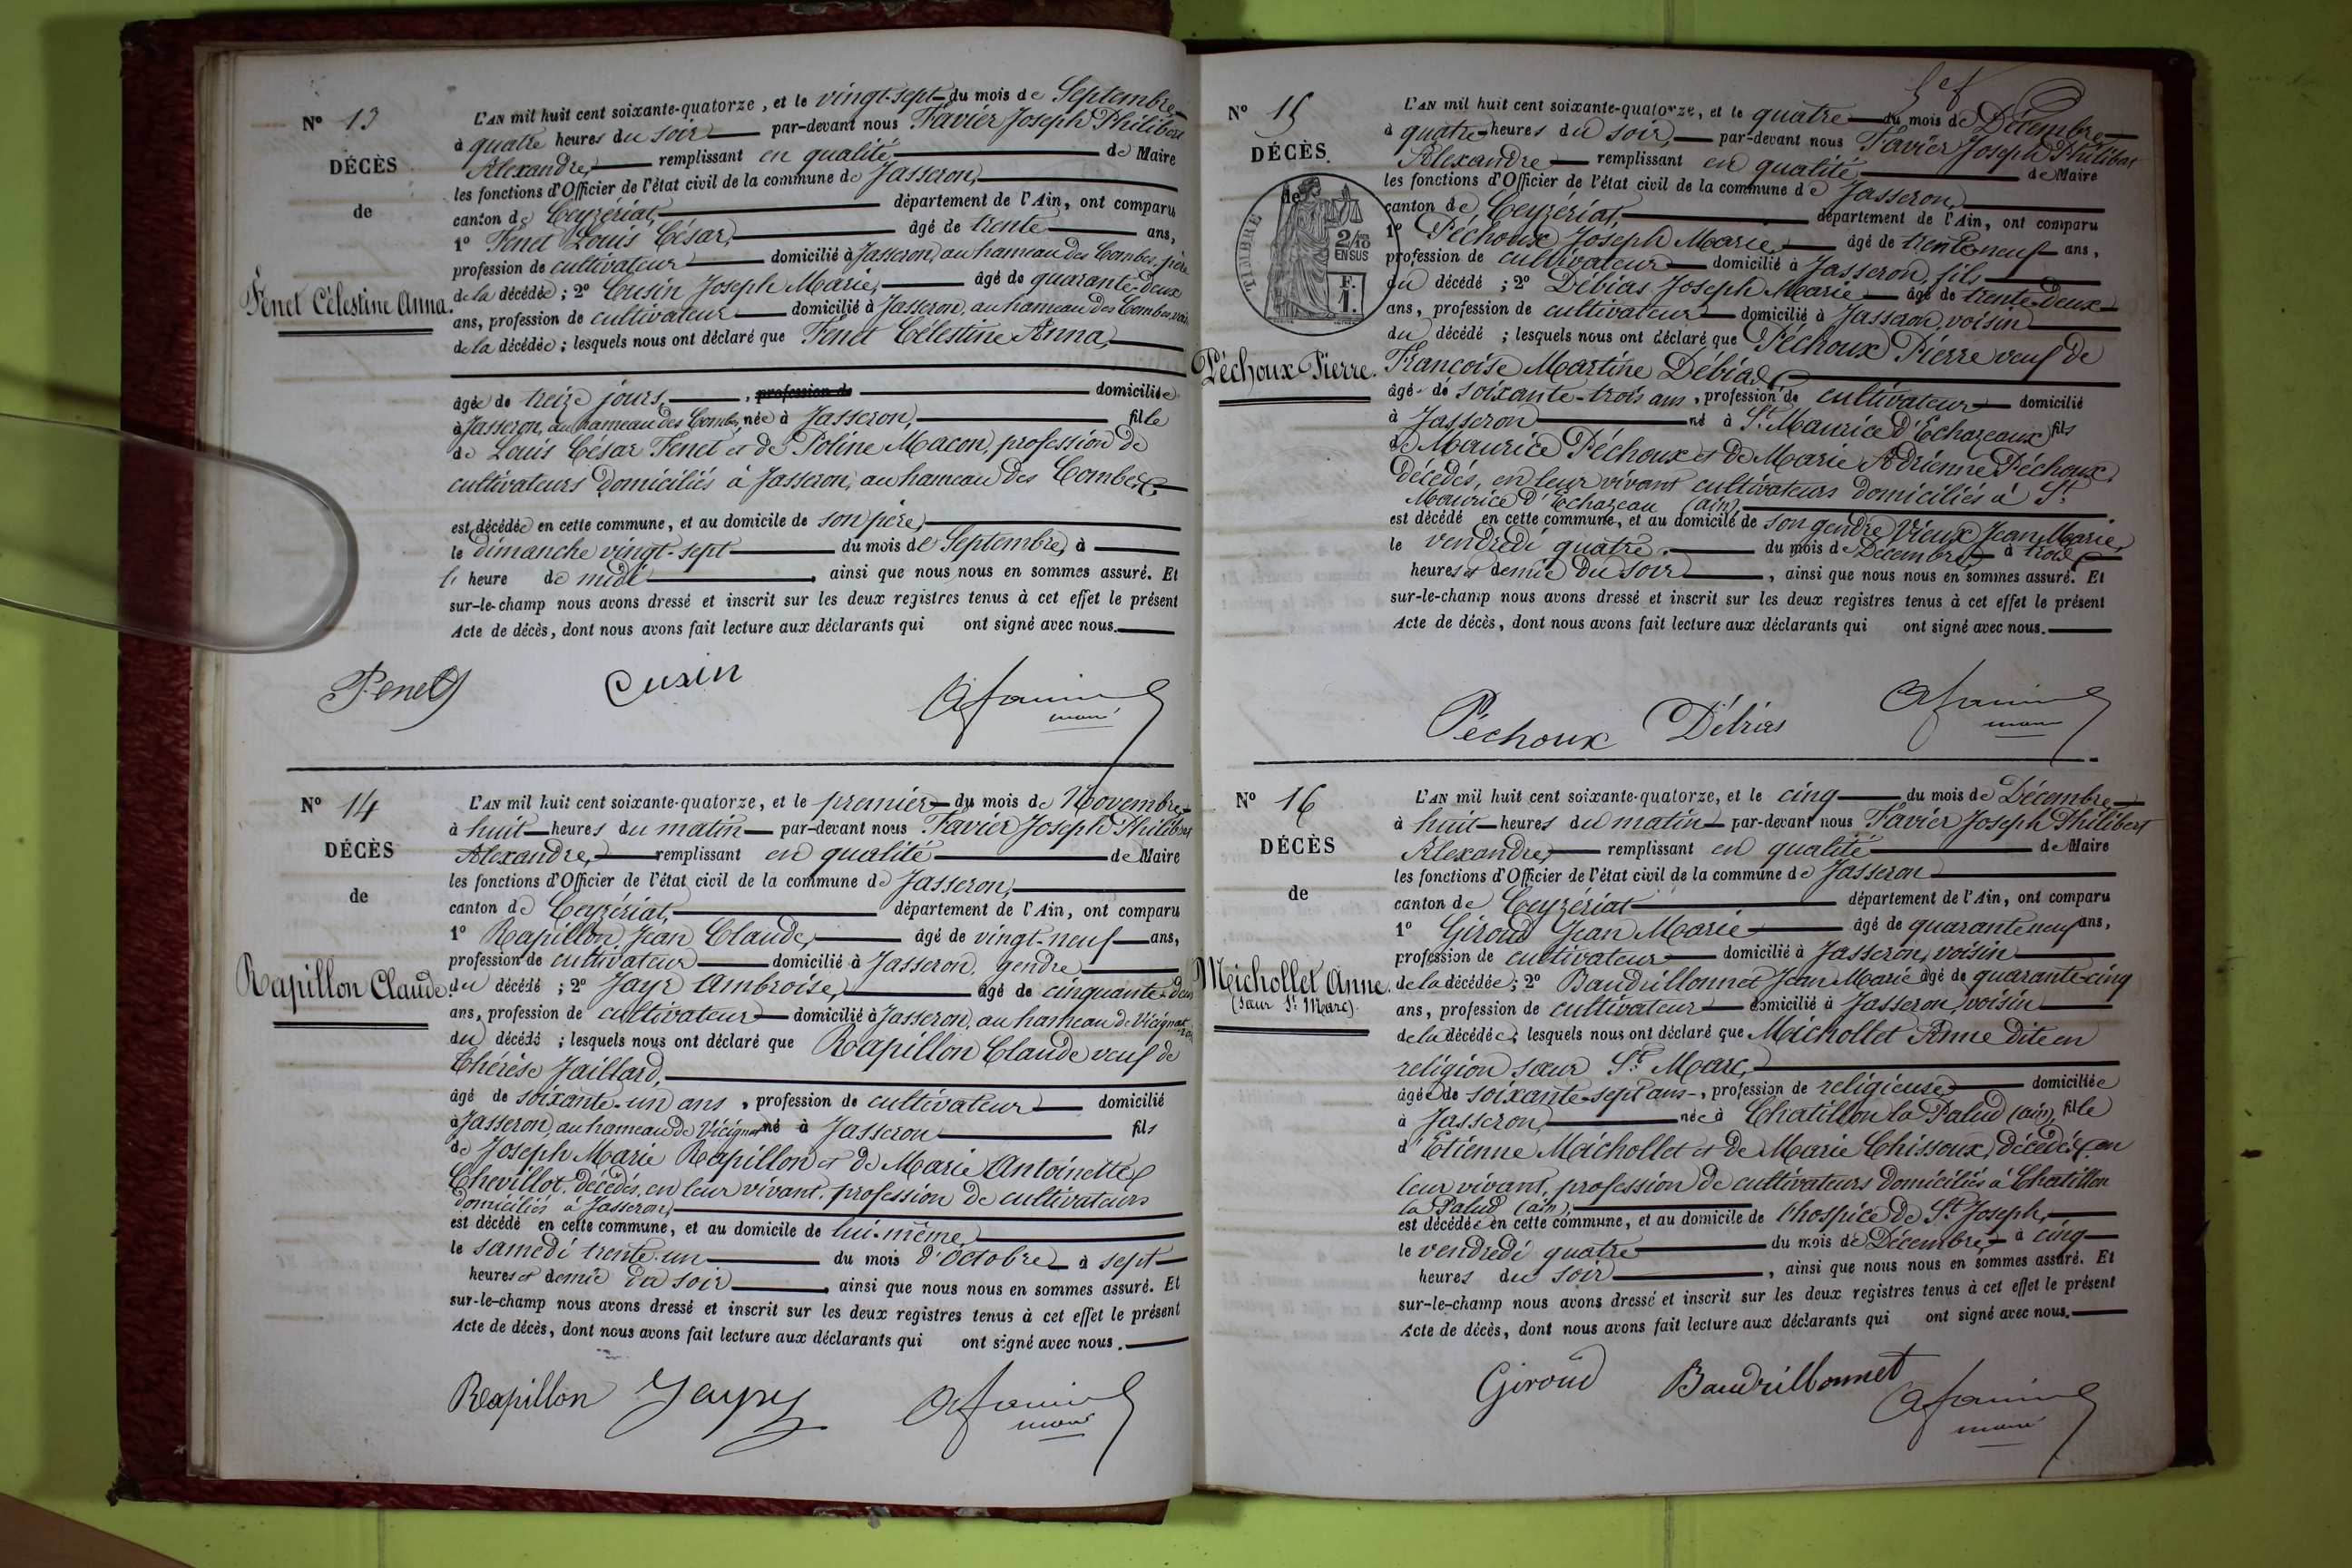 N° 13
DÉCÈS
de
Fenet Célestine Anna.
L'AN mil huit cent soixante-quatorze, et le vingt-sept du mois de Septembre
à quatre heures du soir par-devant nous Favier Joseph Philibert
Alexandre, remplissant en qualité de Maire
les fonctions d'Officier de l'état civil de la commune de Jasseron,
canton de Ceyzériat, département de l'Ain, ont comparu
1° Fenet Louis César, âgé de trente ans,
profession de cultivateur domicilié à Jasseron, au hameau des Combes, père
de la décédée ; 2° Cusin Joseph Marie, âgé de quarante-deux
ans, profession de cultivateur domicilié à Jasseron, au hameau des Combes, voisin
de la décédée ; lesquels nous ont déclaré que Fenet Célestine Anna,
âgée de treize jours, , profession de domiciliée
à Jasseron, au hameau des Combes, née à Jasseron, fille
de Louis César Fenet et de Poline Macon, profession de
cultivateurs domiciliés à Jasseron, au hameau des Combes,
est décédée en cette commune, et au domicile de son père,
le dimanche vingt-sept du mois de Septembre, à
heure de midi , ainsi que nous nous en sommes assuré. Et
sur-le-champ nous avons dressé et inscrit sur les deux registres tenus à cet effet le présent
Acte de décès, dont nous avons fait lecture aux déclarants qui ont signé avec nous.
Fenet Cusin Afavier
maire
N° 14
DÉCÈS
de
Rapillon Claude.
L'AN mil huit cent soixante-quatorze, et le premier du mois de Novembre
à huit heures du matin par-devant nous Favier Joseph Philibert
Alexandre, remplissant en qualité de Maire
les fonctions d'Officier de l'état civil de la commune de Jasseron,
canton de Ceyzériat, département de l'Ain, ont comparu
1° Rapillon Jean Claude, âgé de vingt-neuf ans,
profession de cultivateur domicilié à Jasseron, gendre
du décédé ; 2° Jayr Ambroise, âgé de cinquante-deux
ans, profession de cultivateur domicilié à Jasseron, au hameau de Vicignat
du décédé ; lesquels nous ont déclaré que Rapillon Claude veuf de
Thérèse Jaillard,
âgé de soixante-un ans , profession de cultivateur domicilié
à Jasseron, au hameau de Vicignat né à Jasseron fils
de Joseph Marie Rapillon et de Marie Antoinette
Chevillot, décédés, en leur vivant, profession de cultivateurs
domiciliés à Jasseron,
est décédé en cette commune, et au domicile de lui-même,
le samedi trente-un du mois d'Octobre à sept
heures et demie du soir , ainsi que nous nous en sommes assuré. Et
sur-le-champ nous avons dressé et inscrit sur les deux registres tenus à cet effet le présent
Acte de décès, dont nous avons fait lecture aux déclarants qui ont signé avec nous.
Rapillon Afavier
maire
N° 15
DÉCÈS
de
TIMBRE
2/10
EN SUS
F.
1.
Péchoux Pierre.
L'AN mil huit cent soixante-quatorze, et le quatre du mois de Décembre
à quatre heures du soir, par-devant nous Favier Joseph Philibert
Alexandre remplissant en qualité de Maire
les fonctions d'Officier de l'état civil de la commune de Jasseron,
canton de Ceyzériat, département de l'Ain, ont comparu
1° Péchoux Joseph Marie, âgé de trente-neuf ans,
profession de cultivateur domicilié à Jasseron, fils
du décédé ; 2° Débias Joseph Marie âgé de trente-deux
ans, profession de cultivateur domicilié à Jasseron, voisin
du décédé ; lesquels nous ont déclaré que Péchoux Pierre veuf de
Françoise Martine Débias,
âgé de soixante-trois ans, profession de cultivateur domicilié
à Jasseron né à St Maurice d'Echazeaux fils
de Maurice Péchoux et de Marie Adrienne Péchoux,
décédés, en leur vivant cultivateurs domiciliés à St
Maurice d'Echazeau (ain),
est décédé en cette commune, et au domicile de son gendre Vieux Jean Marie,
le vendredi quatre du mois de Décembre, à trois
heures et demie du soir , ainsi que nous nous en sommes assuré. Et
sur-le-champ nous avons dressé et inscrit sur les deux registres tenus à cet effet le présent
Acte de décès, dont nous avons fait lecture aux déclarants qui ont signé avec nous.
Péchoux Débias Afavier
maire
N° 16
DÉCÈS
de
Michollet Anne.
(sœur St Marc).
L'AN mil huit cent soixante-quatorze, et le cinq du mois de Décembre
à huit heures du matin par-devant nous Favier Joseph Philibert
Alexandre, remplissant en qualité de Maire
les fonctions d'Officier de l'état civil de la commune de Jasseron
canton de Ceyzériat département de l'Ain, ont comparu
1° Giroud Jean Marie âgé de quarante neuf ans,
profession de cultivateur domicilié à Jasseron, voisin
de la décédée ; 2° Baudrillonnet Jean Marie âgé de quarante-cinq
ans, profession de cultivateur domicilié à Jasseron, voisin
de la décédée ; lesquels nous ont déclaré que Michollet Anne dite en
religion sœur St Marc,
âgée de soixante-sept ans, profession de religieuse domiciliée
à Jasseron, née à Chatillon la Palud (ain), fille
d'Etienne Michollet et de Marie Chissoux, décédés, en
leur vivant, profession de cultivateurs domiciliés à Chatillon
la Palud (ain),
est décédée en cette commune, et au domicile de l'hospice de St Joseph,
le vendredi quatre du mois de Décembre, à cinq
heures du soir , ainsi que nous nous en sommes assuré. Et
sur-le-champ nous avons dressé et inscrit sur les deux registres tenus à cet effet le présent
Acte de décès, dont nous avons fait lecture aux déclarants qui ont signé avec nous.
Giroud Baudrillonnet Afavier
maire